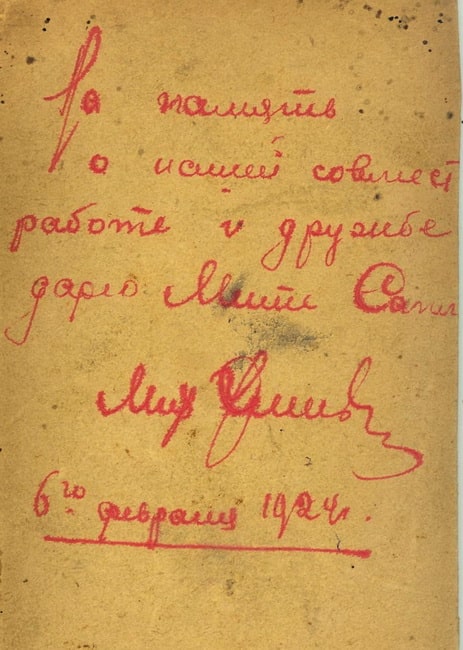 На память
о нашей совмест
работе и дружбе
дарю Мите Сап
Мих
6го февраля 1924г.